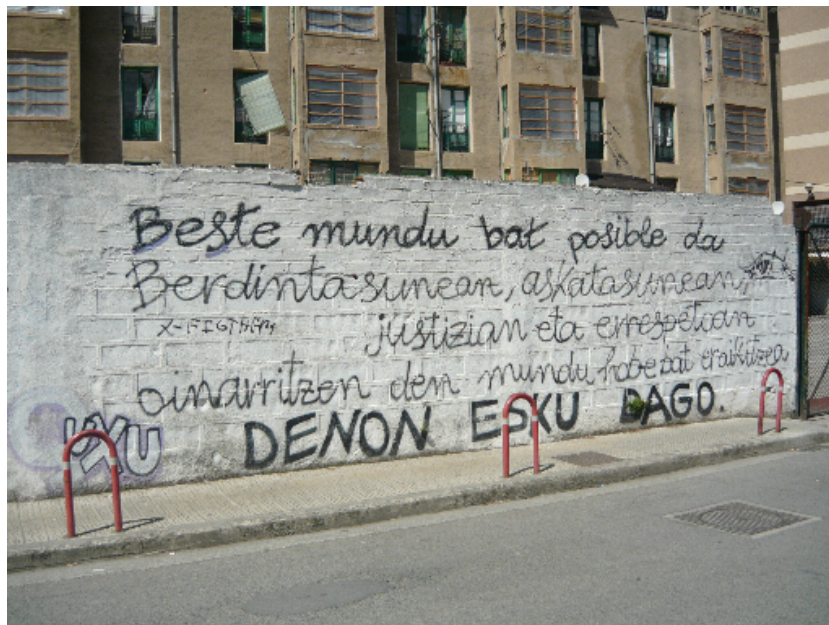 Beste mundu bat posible da
Berdintasunean, askatasunean,
X-FIGTHEM
justizian eta errespetoan
oinarritzen den mundu hobe bat eraikitzea
UXU
DENON ESKU DAGO.